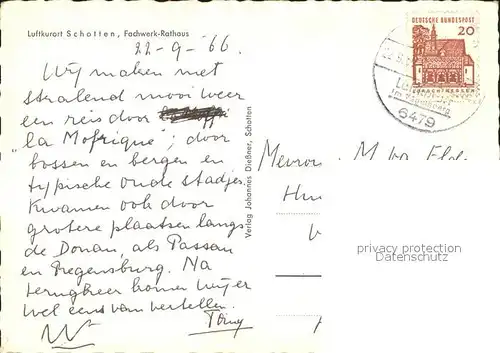 Luftkurort Schotten, Fachwerk-Rathaus
22-9-'66
DEUTSCHE BUNDESPOST
20
LORSCH HESSEN
6479
Wij maken met
stralend mooi weer
een reis door
"la Mofrique"; door
bossen en bergen en
typische oude stadjes.
Kwamen ook door
grotere plaatsen langs
de Donau, als Passau
en Regensburg. Na
terugkeer komen wij er
wel eens van vertellen.
Verlag Johannes Dießner, Schotten
privacy protection
Datenschutz